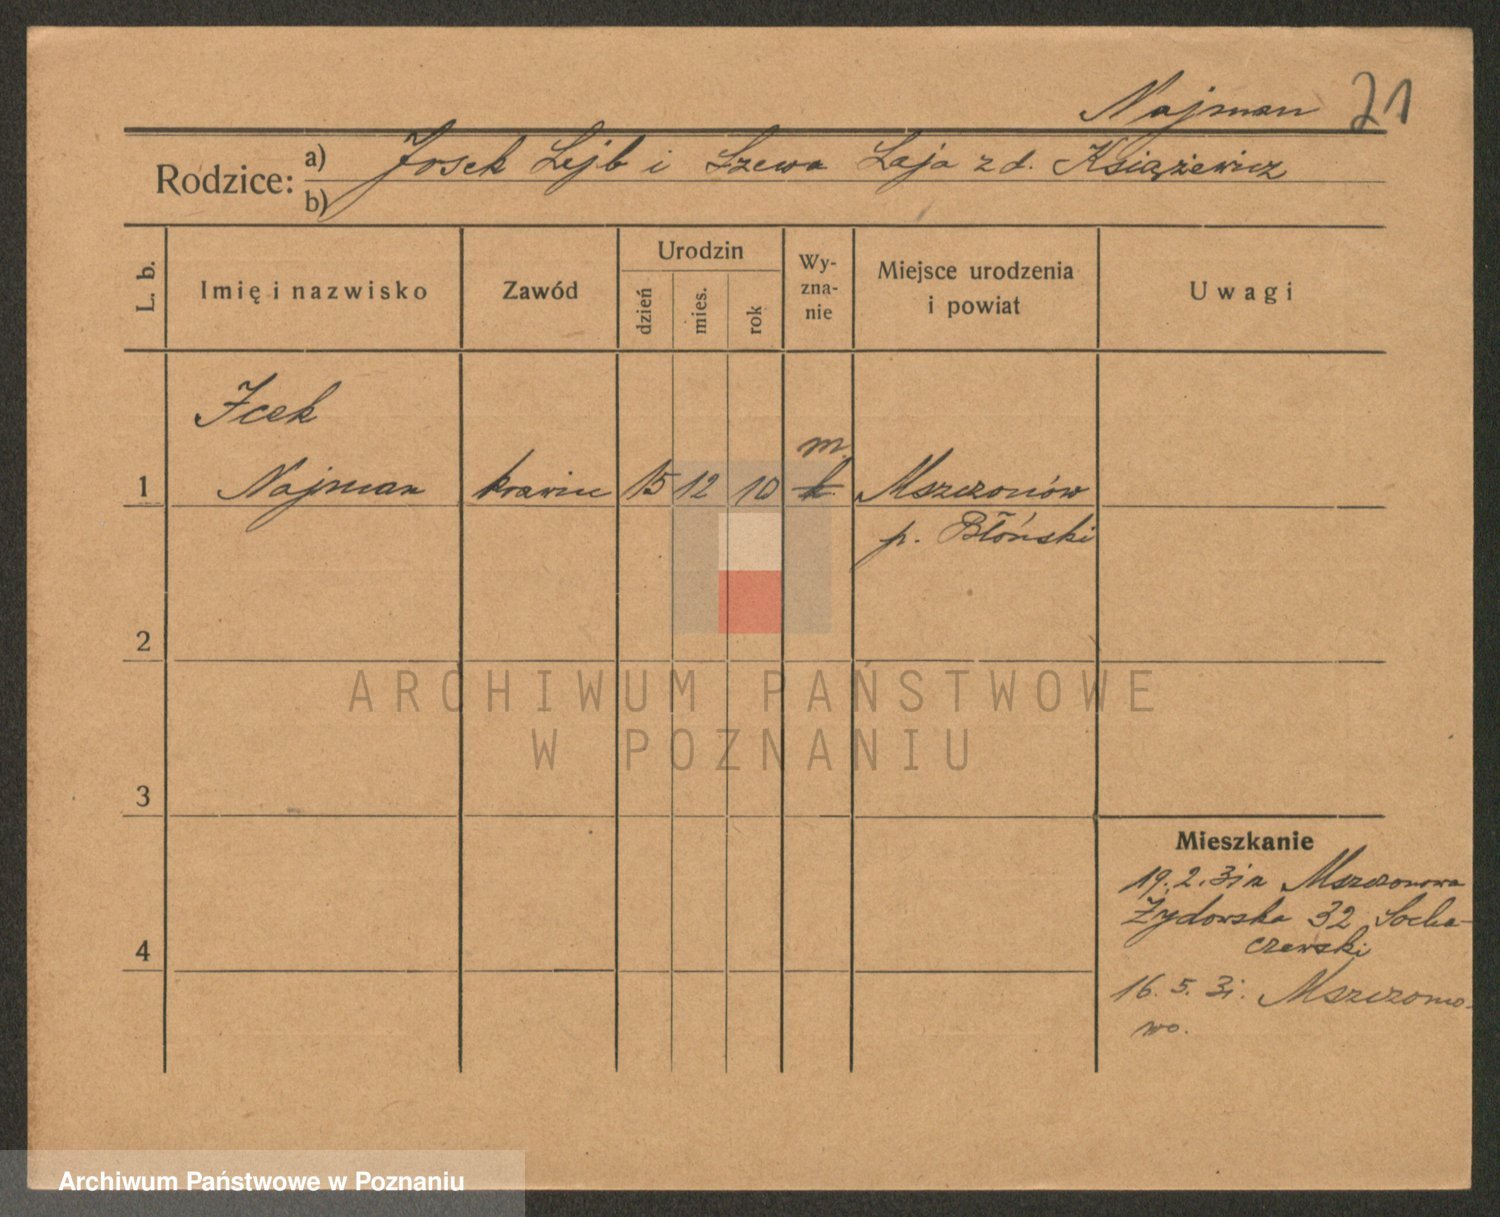 Najman 21
Rodzice: a) Josek Lejb i Szewa Łaja z d. Książewicz
b)
L. b.
Imię i nazwisko
Zawód
Urodzin
dzień
mies.
rok
Wy-
zna-
nie
Miejsce urodzenia
i powiat
Uwagi
Icek
m.
1 Najman krawiec 15 12 10 k. Mszczonów
p. Błoński
2
3
4
Mieszkanie
19.2.31 z Mszczonowa
Żydowska 32 Socha-
czewski
16.5.31. Mszczono-
wo.
ARCHIWUM PAŃSTWOWE
W POZNANIU
Archiwum Państwowe w Poznaniu